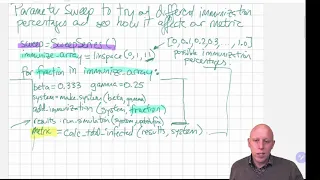 Parameter Sweep to try out different immunization
percentages and see how it affects our metric
sweep = SweepSeries()
immunize_array = linspace(0,1,11)
[0,0.1,0.2,0.3 ..., 1.0]
possible immunization
percentages
for fraction in immunize_array:
beta = 0.333 gamma = 0.25
system = make_system(beta, gamma)
add_immunization(system, fraction)
results = run_simulation(system, update_func)
metric = calc_total_infected(results, system)